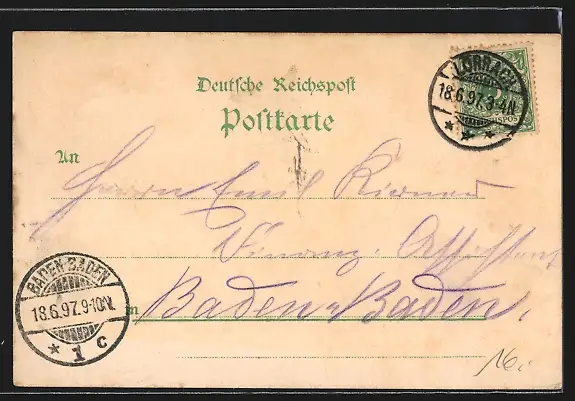 Deutsche Reichspost
Postkarte
LÖRRACH
18.6.97.3-4N.
An
Herrn Emil
Finanz-Assistent
in Baden-Baden.
BADEN-BADEN
18.6.97.9-10N.
1 c
16.